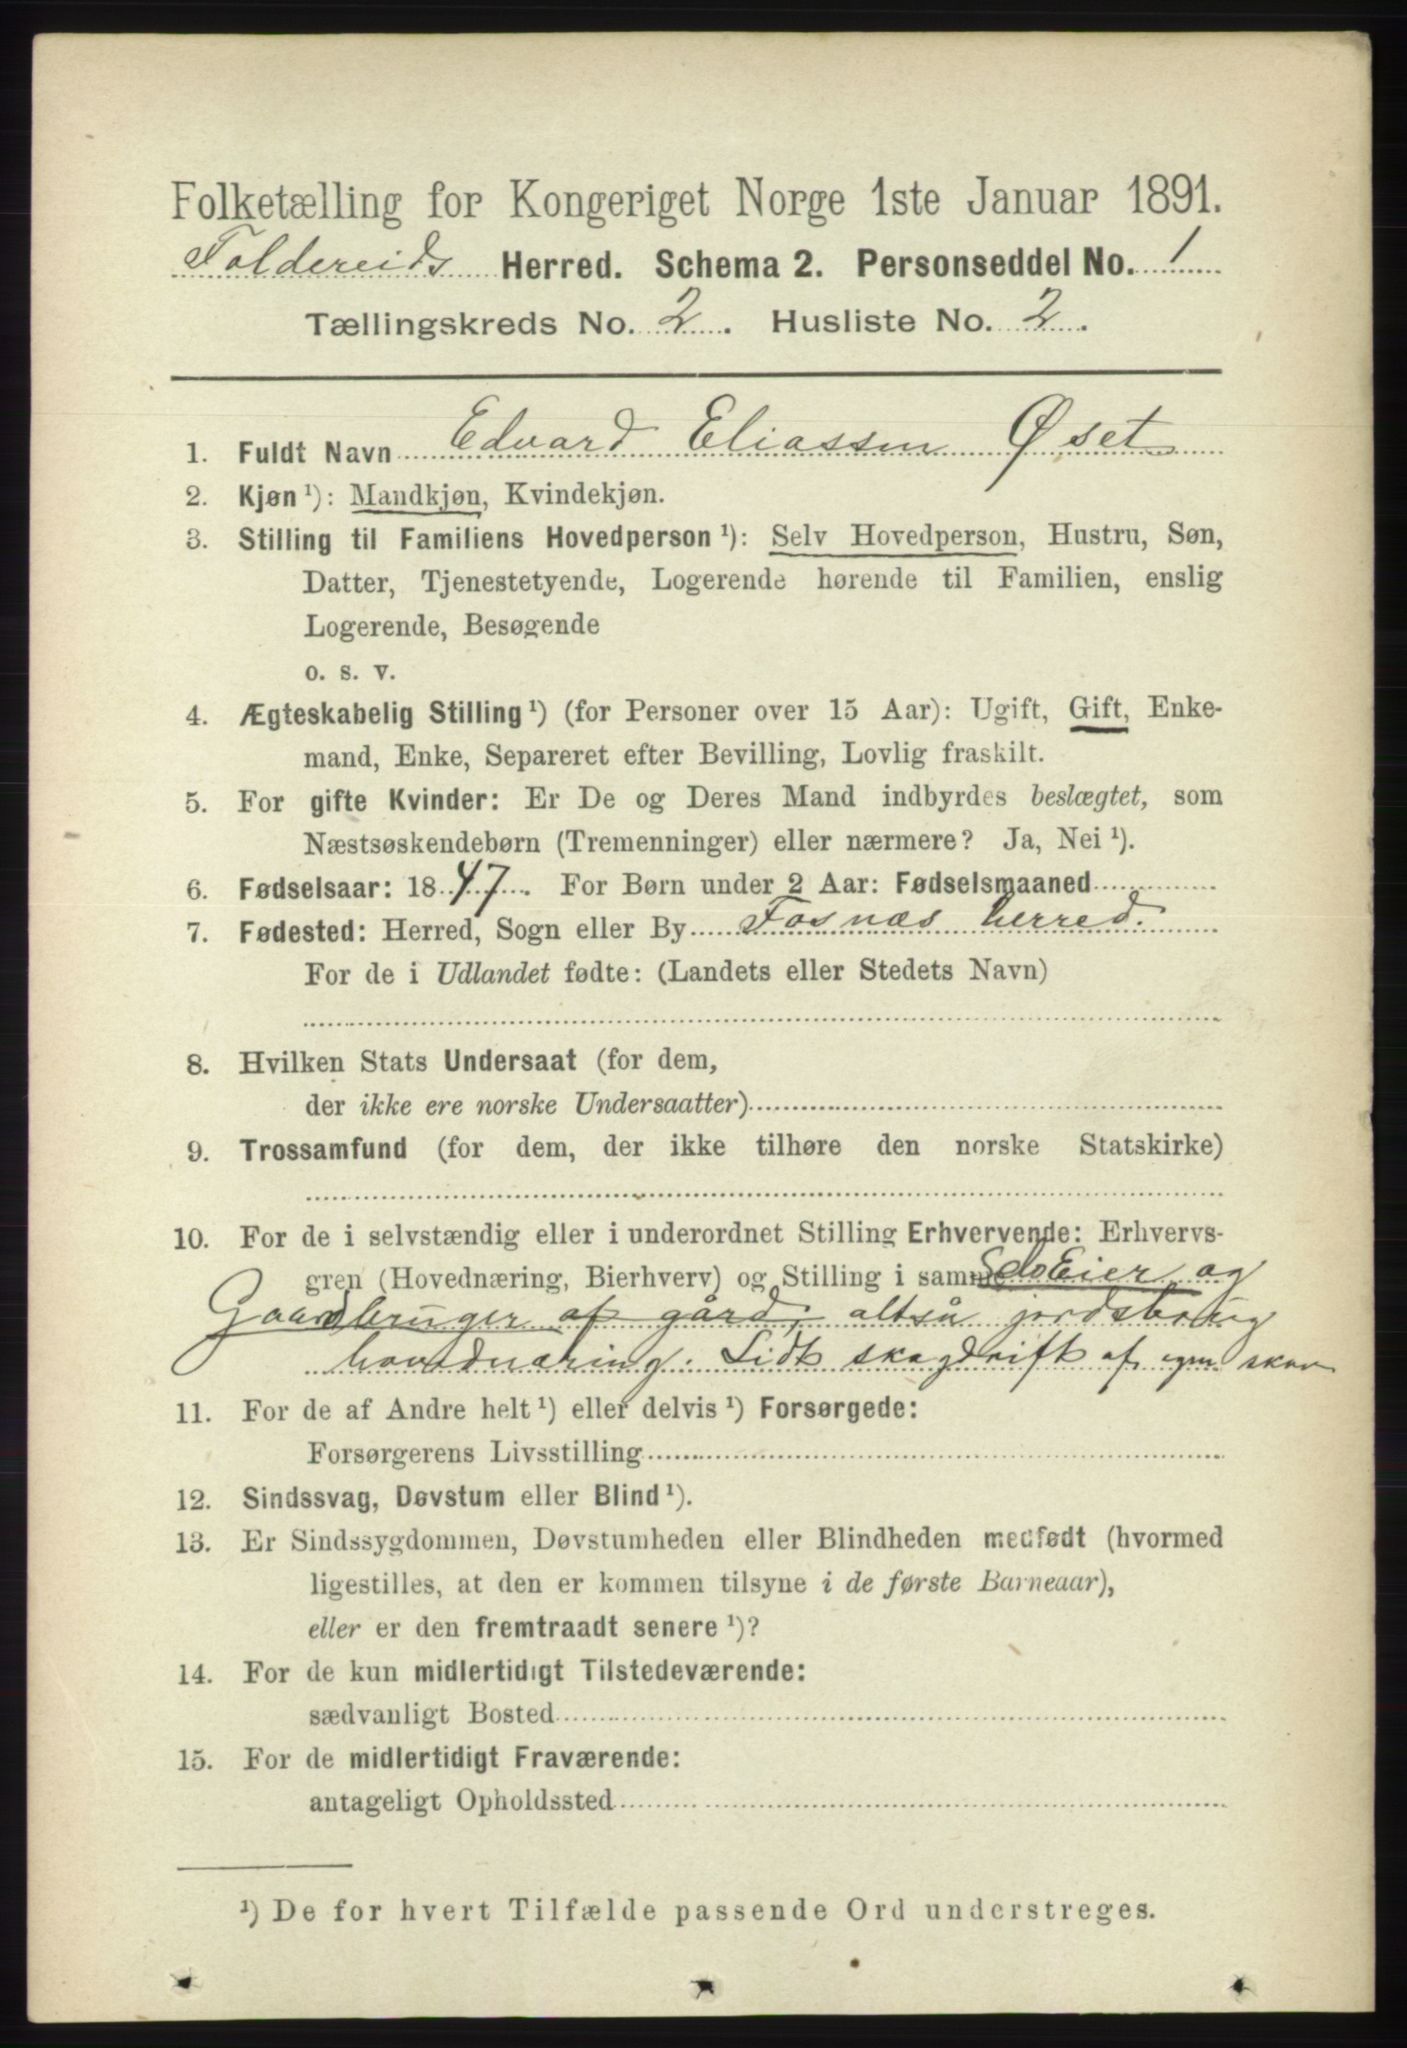 Folketælling for Kongeriget Norge 1ste Januar 1891.
Foldereids Herred. Schema 2. Personseddel No. 1
Tællingskreds No. 2. Husliste No. 2.
1. Fuldt Navn Edvard Eliassen Øset
2. Kjøn ¹): Mandkjøn, Kvindekjøn.
3. Stilling til Familiens Hovedperson ¹): Selv Hovedperson, Hustru, Søn,
Datter, Tjenestetyende, Logerende hørende til Familien, enslig
Logerende, Besøgende
o. s. v.
4. Ægteskabelig Stilling ¹) (for Personer over 15 Aar): Ugift, Gift, Enke-
mand, Enke, Separeret efter Bevilling, Lovlig fraskilt.
5. For gifte Kvinder: Er De og Deres Mand indbyrdes beslægtet, som
Næstsøskendebørn (Tremenninger) eller nærmere? Ja, Nei ¹).
6. Fødselsaar: 1847. For Børn under 2 Aar: Fødselsmaaned
7. Fødested: Herred, Sogn eller By Fosnæs herred.
For de i Udlandet fødte: (Landets eller Stedets Navn)
8. Hvilken Stats Undersaat (for dem,
der ikke ere norske Undersaatter)
9. Trossamfund (for dem, der ikke tilhøre den norske Statskirke)
10. For de i selvstændig eller i underordnet Stilling Erhvervende: Erhvervs-
gren (Hovednæring, Bierhverv) og Stilling i samme SelvEier og
Gaardbruger af gård, altså jordsbrug
hovednæring. Lidt skogdrift af egen skov
11. For de af Andre helt ¹) eller delvis ¹) Forsørgede:
Forsørgerens Livsstilling
12. Sindssvag, Døvstum eller Blind ¹).
13. Er Sindssygdommen, Døvstumheden eller Blindheden medfødt (hvormed
ligestilles, at den er kommen tilsyne i de første Barneaar),
eller er den fremtraadt senere ¹)?
14. For de kun midlertidigt Tilstedeværende:
sædvanligt Bosted
15. For de midlertidigt Fraværende:
antageligt Opholdssted
¹) De for hvert Tilfælde passende Ord understreges.